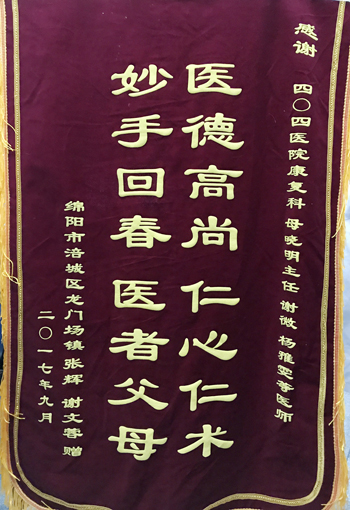 感谢 四〇四医院康复科 母晓明主任 谢微 杨雅雯等医师
医德高尚 仁心仁术
妙手回春 医者父母
绵阳市涪城区龙门场镇 张辉 谢文蓉 赠
二〇一七年九月